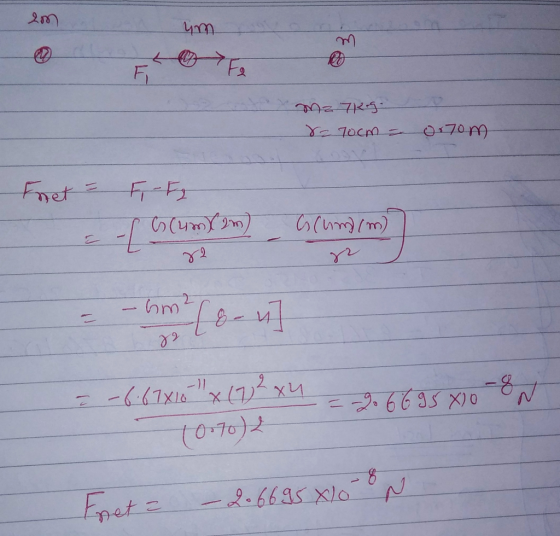 2m 4m m
F₁ F₂
m = 7kg.
r = 70cm = 0.70m
Fnet = F₁ - F₂
= -[ G(4m)(2m) / r² - G(4m)(m) / r² ]
= -Gm² / r² [8 - 4]
= -6.67×10⁻¹¹ × (7)² × 4 / (0.70)2 = -2.6695 ×10⁻⁸ N
Fnet = -2.6695 ×10⁻⁸ N